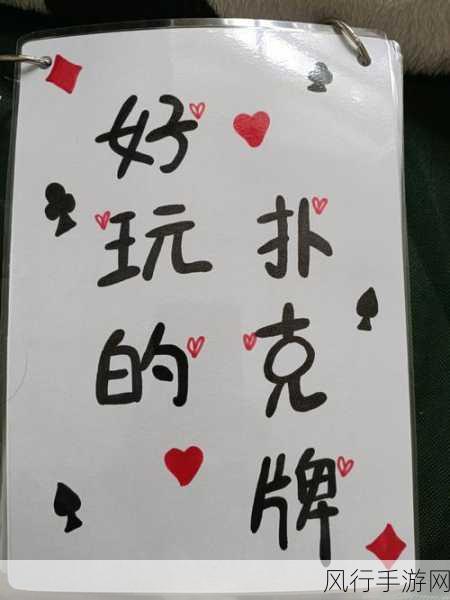 好玩的
扑克牌
风行手游网